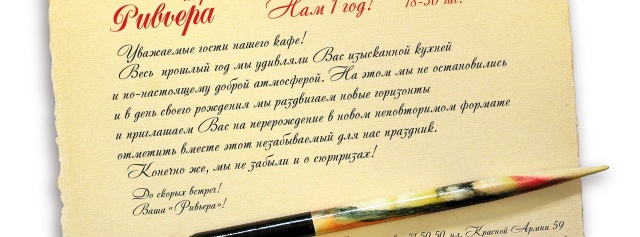 Ривьера
Нам 1 год!
18-30 ш.
Уважаемые гости нашего кафе!
Весь прошлый год мы удивляли Вас изысканной кухней
и по-настоящему доброй атмосферой. На этом мы не остановились
и в день своего рождения мы раздвигаем новые горизонты
и приглашаем Вас на перерождение в новом неповторимом формате
отметить вместе этот незабываемый для нас праздник.
Конечно же, мы не забыли и о сюрпризах!
До скорых встреч!
Ваша «Ривьера»!
31 50 50, пл. Красной Армии 59